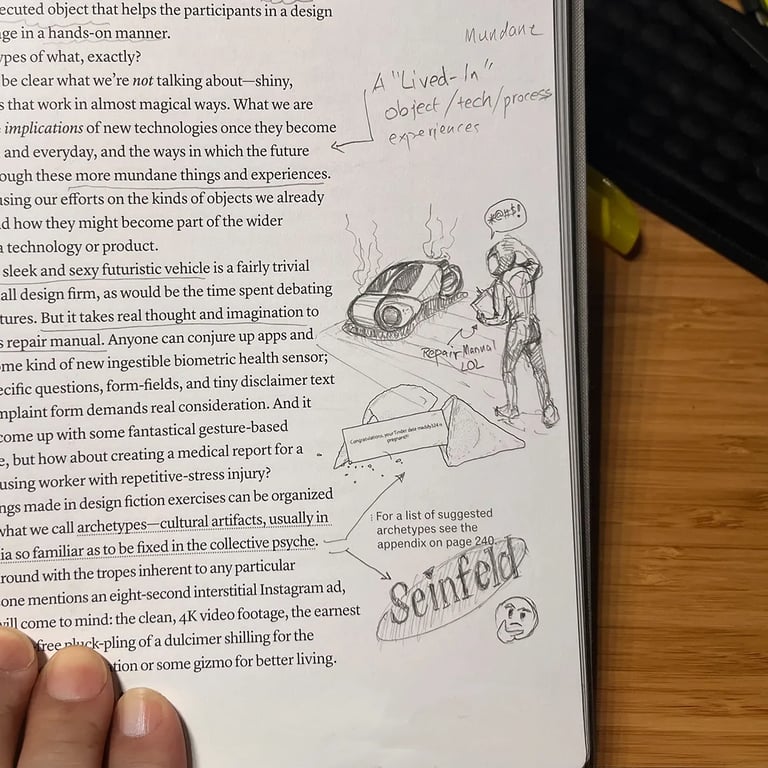 ecuted object that helps the participants in a design
ge in a hands-on manner.
ypes of what, exactly?
be clear what we're not talking about—shiny,
s that work in almost magical ways. What we are
implications of new technologies once they become
and everyday, and the ways in which the future
ough these more mundane things and experiences.
using our efforts on the kinds of objects we already
d how they might become part of the wider
a technology or product.
sleek and sexy futuristic vehicle is a fairly trivial
all design firm, as would be the time spent debating
tures. But it takes real thought and imagination to
s repair manual. Anyone can conjure up apps and
ome kind of new ingestible biometric health sensor;
ecific questions, form-fields, and tiny disclaimer text
mplaint form demands real consideration. And it
come up with some fantastical gesture-based
e, but how about creating a medical report for a
using worker with repetitive-stress injury?
ngs made in design fiction exercises can be organized
what we call archetypes—cultural artifacts, usually in
ia so familiar as to be fixed in the collective psyche.
round with the tropes inherent to any particular
one mentions an eight-second interstitial Instagram ad,
will come to mind: the clean, 4K video footage, the earnest
free pluck-pling of a dulcimer shilling for the
tion or some gizmo for better living.
Mundane
A "Lived-In"
object/tech/process
experiences
*@#$!
Repair Manual
LOL
Congratulations, your Tinder date maddy124 is
pregnant!!
: For a list of suggested
archetypes see the
appendix on page 240.
Seinfeld